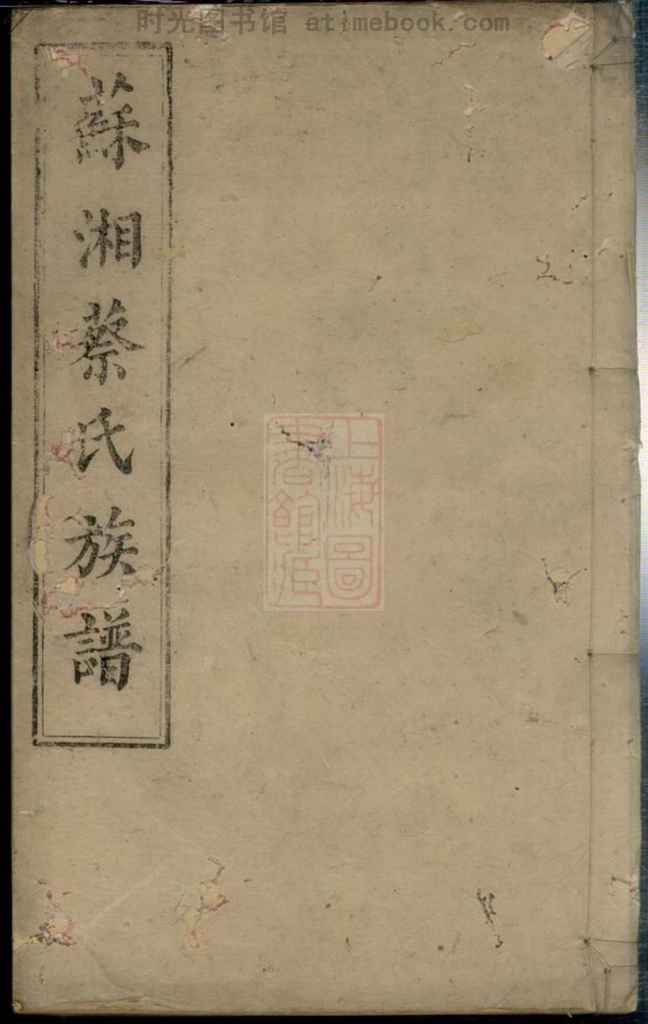 时光图书馆 atimebook.com
蘇湘蔡氏族譜
上海圖
書館藏